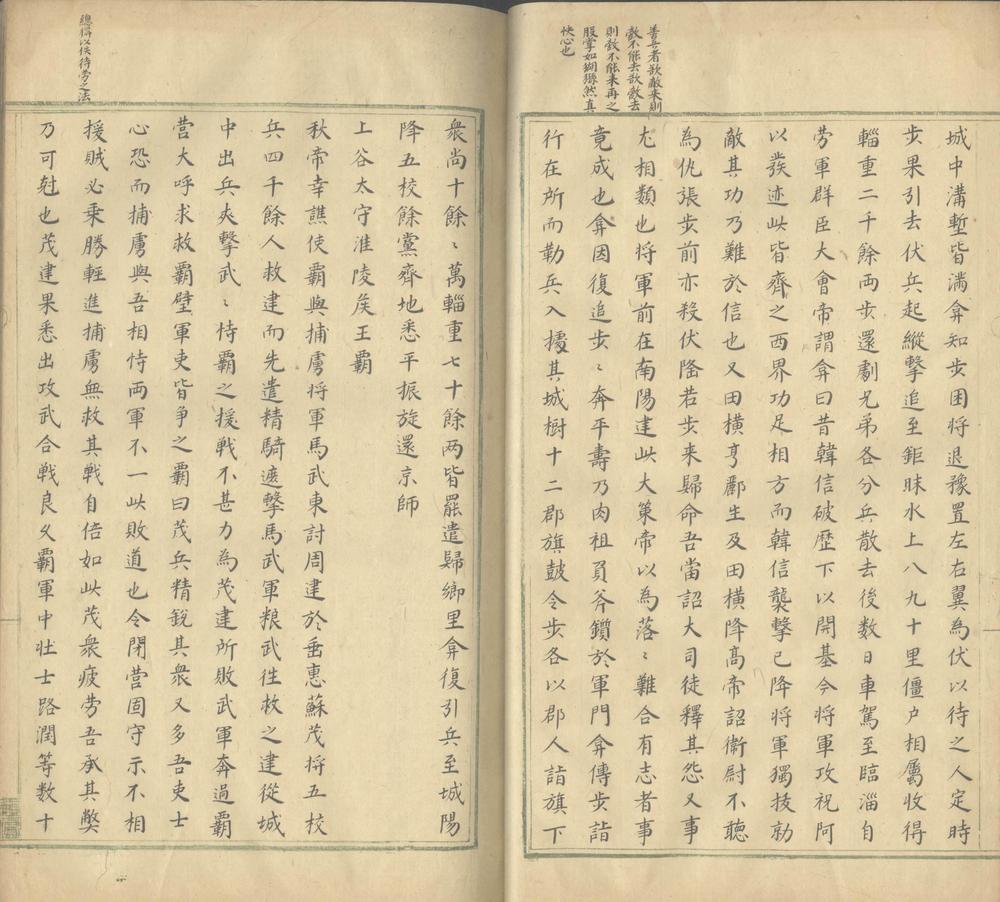 善兵者欲敵来則
敵不能去欲敵去
則敵不能来再之
股掌如猢猻然真
快心也
城中溝塹皆満弇知步困将退豫置左右翼為伏以待之人定時
步果引去伏兵起縱擊追至鉅昧水上八九十里僵尸相屬收得
輜重二千餘両步還劇兄弟各分兵散去後数日車駕至臨淄自
劳軍群臣大會帝謂弇曰昔韓信破歴下以開基今将軍攻祝阿
以發迹此皆齊之西界功足相方而韓信襲擊已降将軍獨拔勍
敵其功乃難於信也又田橫亨酈生及田橫降高帝詔衛尉不聽
為仇張步前亦殺伏隆若步来歸命吾當詔大司徒釋其怨又事
尤相類也将軍前在南陽建此大策帝以為落〻難合有志者事
竟成也弇因復追步〻奔平壽乃肉袒負斧鑕於軍門弇傳步詣
行在所而勒兵入據其城樹十二郡旗鼓令步各以郡人詣旗下
總得以佚待劳之法
衆尚十餘〻萬輜重七十餘两皆罷遣歸鄉里弇復引兵至城陽
降五校餘黨齊地悉平振旋還京師
上谷太守淮陵矦王覇
秋帝幸譙使覇與捕虜将軍馬武東討周建於垂惠蘇茂将五校
兵四千餘人救建而先遣精騎遮擊馬武軍粮武往救之建從城
中出兵夾擊武〻恃覇之援戦不甚力為茂建所敗武軍奔過覇
营大呼求救覇壁軍吏皆争之覇曰茂兵精銳其衆又多吾吏士
心恐而捕虜與吾相恃両軍不一此敗道也令閉营固守示不相
援賊必乗勝輕進捕虜無救其戦自倍如此茂衆疲劳吾承其獘
乃可尅也茂建果悉出攻武合戦良久覇軍中壮士路潤等数十